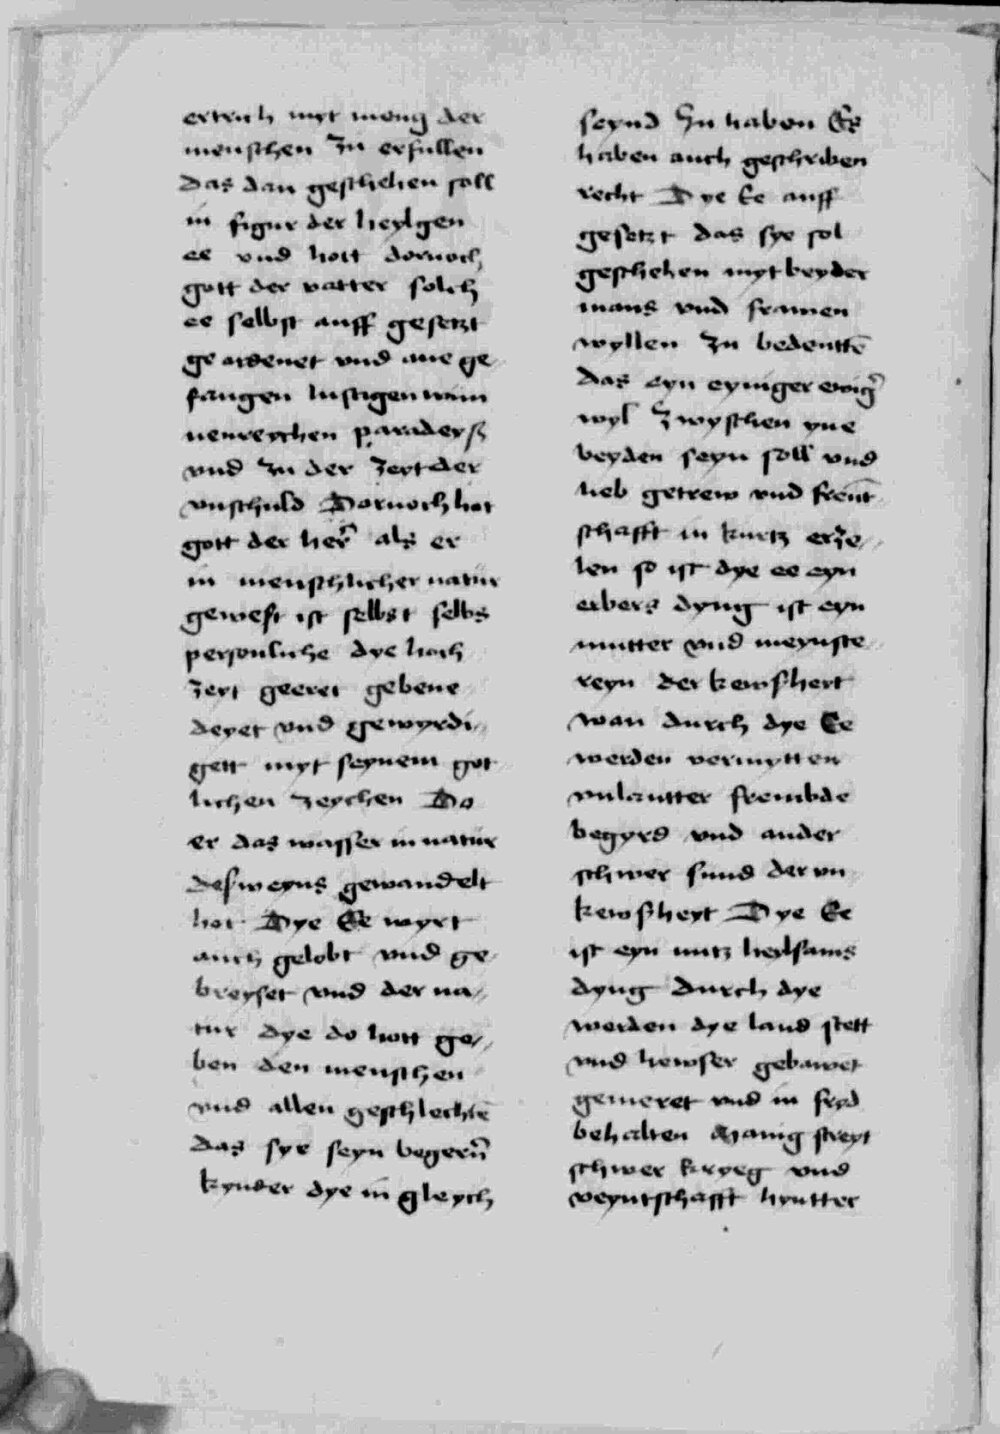 ertrich myt meng der
menschen zu erfullen
das dan geschehen soll
in figur der heylgen
ee vnd hott dornoch
gott der vatter solch
ee selbst auff gesetzt
ge ordenet vnd ane ge
fangen lustigen wun
nenreychen paradeyß
vnd zu der zeyt der
vnschuld Dornoch hot
gott der her̃ als er
in menschlicher natur
gewest ist selbst selbs
personliche dye hoch
zeyt geeret gebene
deyet vnd gewyrdi
gett myt seynem got
lichen zeychen Do
er das wasser in natur
des weyns gewandelt
hot Dye Ee wyrt
auch gelobt vnd ge
breyset vnd der na
tur dye do hott ge
ben den menschen
vnd allen geschlechtē
das sye seyn begerñ
kynder dye in gleych
seynd zu haben Es
haben auch geschriben
recht Dye Ee auff
gesetzt das sye sol
geschehen myt beyder
mans vnd frawen
wyllen zu bedeuttē
das eyn eyniger ewig̃
wyl zwyschen yne
beyden seyn soll vnd
lieb getrew vnd freūt
schafft in kurtz erze
len so ist dye ee eyn
erbers dyng ist eyn
mutter vnd meynste
reyn der kewshert
wan durch dye Ee
werden vermytten
vnlautter frembde
begyrd vnd ander
schwer sund der vn
kewsheyt Dye Ee
ist eyn nutz heylsams
dyng durch dye
werden dye land stett
vnd hewser gebawet
gemeret vnd in fryd
behalten Manig streyt
schwer kryeg vnd
veyntschafft hyntter